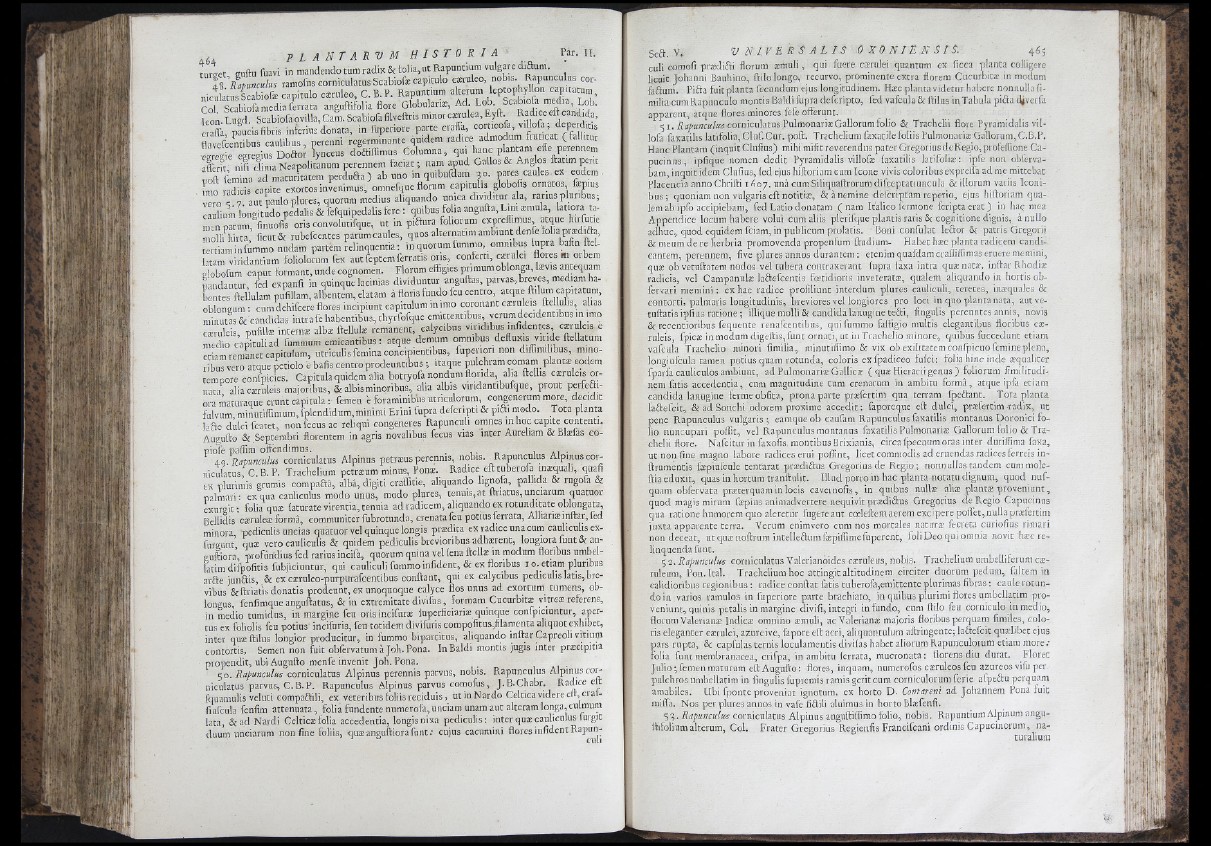 464 PLANTARUM HISTORIA Par. II.
turget, gustu suavi in mandendo tum radix & folia, ut Rapuntium vulgare dictum.
48. Rapunculus ramosus corniculatus Scabiosæ capitulo cæruleo, nobis. Rapunculus cor-
niculatus Scabiosæ capitulo cæruleo, C. B. P. Rapuntium alterum leptophyllon capitatum,
Col. Scabiosa media serrata angustifolia flore Globulariæ, Ad. Lob. Scabiosa media, Lob.
Icon. Lugd. Scabiosa ovilla, Cam. Scabiosa silvestris minor cærulea, Eyst. Radice est candida,
crassa, paucis fibris inferius donata, in superiore parte crassa, corticosa, villosa; deperditis
flavescentibus caulibus, perenni regerminante quidem radice admodum fruticat (fallitur
egregie egregius Doctor lynceus doctissimus Columna, qui hanc plantam esse perennem
asserit, nisi clima Neapolitanum perennem faciat; nam apud Gallos & Anglos statim perit
post semina ad maturitatem perducta) ab uno in quibusdam 30. pares caules ex eodem
imo radicis capite exortos invenimus, omnesque florum capitulis globosis ornatos, sæpius
vero 5. 7. aut paulo plures, quorum medius aliquando unica dividitur ala, rarius pluribus;
caulium longitudo pedalis & sesquipedalis fere: quibus folia angusta, Lini æmula, latiora ta-
men parum, sinuosis oris convolutisque, ut in pictura foliorum expressimus, atque hirsutie
molli hirta, sicut & rubescentes parum caules, quos alternatim ambiunt dense folia prædicta,
tertiam in summo nudam partem relinquentia: in quorum summo, omnibus supra basin stel-
latam viridantium foliolorum sex aut septem serratis oris, conferti, cærulei flores in orbem
globosum caput formant, unde cognomen. Florum effigies primum oblonga, lævis antequam
pandantur, sed expansi in quinque lacinias dividuntur angustas, parvas, breves, mediam ha-
bentes stellulam pusillam, albentem, elatam à floris fundo seu centro, atque stilum capitatum,
oblongum: cum dehiscere flores incipiunt capitulum in imo coronant cæruleis stellulis, alias
minutas & candidas intra se habentibus, chrysosque emittentibus, verum decidentibus in imo
cæruleis, pusillæ internæ albæ stellulæ remanent, calycibus viridibus insidentes, cæruleis e
medio capituli ad summum emicantibus: atque demum omnibus defluxis viride stellatum
etiam remanet capitulum, utriculis semina concipientibus, superiori non dissimilibus, mino-
ribus vero atque petiolo è basis centro prodeuntibus; itaque pulchram comam plantæ eodem
tempore conspicies. Capitula quidem alia botryosa nondum florida, alia stellis cæruleis or-
nata, alia cæruleis majoribus, & albis minoribus, alia albis viridantibusque, prout perfecti-
ora maturaque erunt capitula: semen è foraminibus utriculorum, congenerum more, decidit
fulvum, minutissimum, splendidum, minimi Erini supra descripti & picti modo. Tota planta
lacte dulci scatet, non secus ac reliqui congeneres Rapunculi omnes in hoc capite contenti.
Augusto & Septembri florentem in agris novalibus secus vias inter Aureliam & Blæsas co-
piose passim offendimus.
49. Rapunculus corniculatus Alpinus petræus perennis, nobis. Rapunculus Alpinus cor-
niculatus, C. B. P. Trachelium petræum minus, Ponæ. Radice est tuberosa inæquali, quasi
ex plurimis grumis compacta, alba, digiti crassitie, aliquando lignosa, pallida & rugosa &
palmari: ex qua cauliculus modo unus, modo plures, tenuis, at striatus, unciarum quatuor
exurgit: folia quæ saturate virentia, tenuia ad radicem, aliquando ex rotunditate oblongata,
Bellidis cæruleæ formâ, communiter subrotunda, crenata seu potius serrata, Alliariæ instar, sed
minora, pediculis uncias quatuor vel quinque longis prædita ex radice una cum cauliculis ex-
surgunt, quæ vero cauliculis & quidem pediculis brevioribus adhærent, longiora sunt & an-
gustiora, profundius sed rarius incisa, quorum quina vel sena stellæ in modum floribus umbel-
latim dispositis subjiciuntur, qui cauliculi summo insident, & ex floribus 10. etiam pluribus
arcte junctis, & ex cæruleo-purpurascentibus constant, qui ex calycibus pediculis latis, bre-
vibus & striatis donatis prodeunt, ex unoquoque calyce flos unus ad exortum tumens, ob-
longus, sensimque angustatus, & in extremitate divisus, formam Cucurbitæ vitreæ referens,
in medio tumidus, in margine seu oris incisuræ superficiariæ quinque conspiciuntur, aper-
tus ex foliolis seu potius incisuris, seu totidem divisuris compositus, filamenta aliquot exhibet,
inter quæ stilus longior producitur, in summo bipartitus, aliquando instar Capreoli vitium
contortis. Semen non fuit observatum à Joh. Pona. In Baldi montis jugis inter præcipitia
propendit, ubi Augusto mense invenit Joh. Pona.
50. Rapunculus corniculatus Alpinus perennis parvus, nobis. Rapunculus Alpinus cor-
niculatus parvus, C. B. P. Rapunculus Alpinus parvus comosus, J. B. Chabr. Radice est
squamulis veluti compactili, ex veteribus foliis reciduis, ut in Nardo Celtica videre est, cras-
siuscula sensim attenuata, folia fundente numerosa, unciam unam aut alteram longa, culmum
lata, & ad Nardi Celticæ folia accedentia, longis nixa pediculis: inter quæ cauliculus surgit
duum unciarum non sine foliis, quæ angustiora sunt: cujus cacumini flores insident Rapun-
culi
Sect. V. UNIVERSALIS OXONIENSIS. 465
culi comosi prædicti florum æmuli, qui fuere cærulei quantum ex sicca planta colligere
licuit Johanni Bauhino, stilo longo, recurvo, prominente extra florem Cucurbitæ in modum
factum. Picta fuit planta secundum ejus longitudinem. Hæc planta videtur habere nonnulla si-
milia cum Rapunculo montis Baldi supra descripto, sed vascula & stilus in Tabula picta diversa
apparent, atque flores minores sese offerunt.
51. Rapunculus corniculatus Pulmonariæ Gallorum folio & Trachelii flore Pyramidalis vil-
losa saxatilis latifolia, Clus. Cur. post. Trachelium saxatile foliis Pulmonariæ Gallorum, C. B. P.
Hanc Plantam (inquit Clusius) mihi misit reverendus pater Gregorius de Regio, professione Ca-
pucinus, ipsique nomen dedit Pyramidalis villosæ saxatilis latifoliæ: ipse non observa-
bam, inquit idem Clusius, sed ejus historiam cum Icone vivis coloribus expressa ad me mittebat
Placencia anno Christi 1607. unà cum Siliquastrorum disceptatiuncula & illorum variis Iconi-
bus; quoniam non vulgaris est notitiæ, & à nemine descriptam reperio, ejus historiam qua-
lem ab ipso accipiebam, sed Latio donatam (nam Italico sermone scripta erat) in hac mea
Appendice locum habere volui cum aliis plerisque plantis raris & cognitione dignis, à nullo
adhuc, quod equidem sciam, in publicum prolatis. Boni consulat lector & patris Gregorii
& meum de re herbaria promovenda propensum studium. Habet hæc planta radicem candi-
cantem, perennem, sive plures annos durantem: etenim quasdam crassissimas eruere memini,
quæ ob vetustatem nodos vel tubera contraxerant supra laxa intra quæ natæ, instar Rhodiæ
radicis, vel Campanulæ lactescentis fœtidioris inveteratæ, qualem aliquando in hortis ob-
servari memini: ex hac radice prosiliunt interdum plures cauliculi, teretes, inæquales &
contorti, palmaris longitudinis, breviores vel longiores pro loci in quo planta nata, aut ve-
tustatis ipsius ratione; illique molli & candida lanugine tecti, singulis pereuntes annis, novis
& recentioribus sequente renascentibus, qui summo fastigio multis elegantibus floribus cæ-
ruleis, spicæ in modum digestis, sunt ornati, ut in Trachelio minore, quibus succedunt etiam
vascula Trachelio minori similia, minutissimo & vix ob exilitatem conspicuo semine plena,
longiuscula tamen potius quam rotunda, coloris ex spadiceo fusci: folia hinc inde æqualiter
sparsa cauliculos ambiunt, ad Pulmonariæ Gallicæ (quæ Hieracii genus) foliorum similitudi-
nem satis accedentia, cum magnitudine tum crenarum in ambitu formâ, atque ipsa etiam
candida lanugine ferme obsita, prona parte præsertim qua terram spectant. Tota planta
lactescit, & ad Sonchi odorem proxime accedit: saporeque est dulci, præsertim radix, ut
pene Rapunculus vulgaris; eamque ob causam Rapunculus saxatilis montanus Doronici fo-
lio nuncupari possit, vel Rapunculus montanus saxatilis Pulmonariæ Gallorum folio & Tra-
chelii flore. Nascitur in saxosis montibus Brixianis, circa specuum oras inter durissima saxa,
ut non sine magno labore radices erui possint, licet commodis ad eruendas radices ferreis in-
strumentis sæpiuscule tentarat prædictus Gregorius de Regio; nonnullas tandem cum mole-
stia eduxit, quas in hortum transtulit. Illud porro in hac planta notatu dignum, quod nus-
quam observata præterquam in locis cavernosis, in quibus nullæ aliæ plantæ proveniunt,
quod magis mirum sæpius animadvertere nequivit prædictus Gregorius de Regio Capucinus
qua ratione humorem quo aleretur sugere aut cœlestem aerem excipere posset, nulla præsertim
juxta apparente terra. Verum enimvero cum nos mortales naturæ secreta curiosius rimari
non deceat, ut quæ nostrum intellectum sæpissime superent, soli Deo qui omnia novit hæc re-
linquenda sunt.
52. Rapunculus corniculatus Valerianoides cæruleus, nobis. Trachelium umbelliferum cæ-
ruleum, Pon. Ital. Trachelium hoc attingit altitudinem circiter duorum pedum, saltem in
calidioribus regionibus: radice constat satis tuberosa, emittente plurimas fibras: caule rotun-
do in varios ramulos in superiore parte brachiato, in quibus plurimi flores umbellatim pro-
veniunt, quinis petalis in margine divisi, integri in fundo, cum stilo seu corniculo in medio,
florum Valerianæ Indicæ omnino æmuli, ac Valerianæ majoris floribus perquam similes, colo-
ris eleganter cærulei, azureive, sapore est acri, aliquantulum astringente; lactescit quælibet ejus
pars rupta, & capsulas ternis loculamentis divisas habet aliorum Rapunculorum etiam more:
folia sunt membranacea, crispa, in ambitu serrata, mucronata: florens diu durat. Floret
Julio; semen maturum est Augusto: flores, inquam, numerosos cæruleos seu azureos visu per-
pulchros umbellatim in singulis supremis ramis gerit cum corniculorum serie aspectu perquam
amabiles. Ubi sponte proveniat ignotum, ex horto D. Contareni ad Johannem Pona fuit
missa. Nos per plures annos in vase fictili aluimus in horto Blæsensi.
53. Rapunculus corniculatus Alpinus angustissimo folio, nobis. Rapuntium Alpinum angu-
stifolium alterum, Col. Frater Gregorius Regiensis Franciscani ordinis Capucinorum, na-
turalium